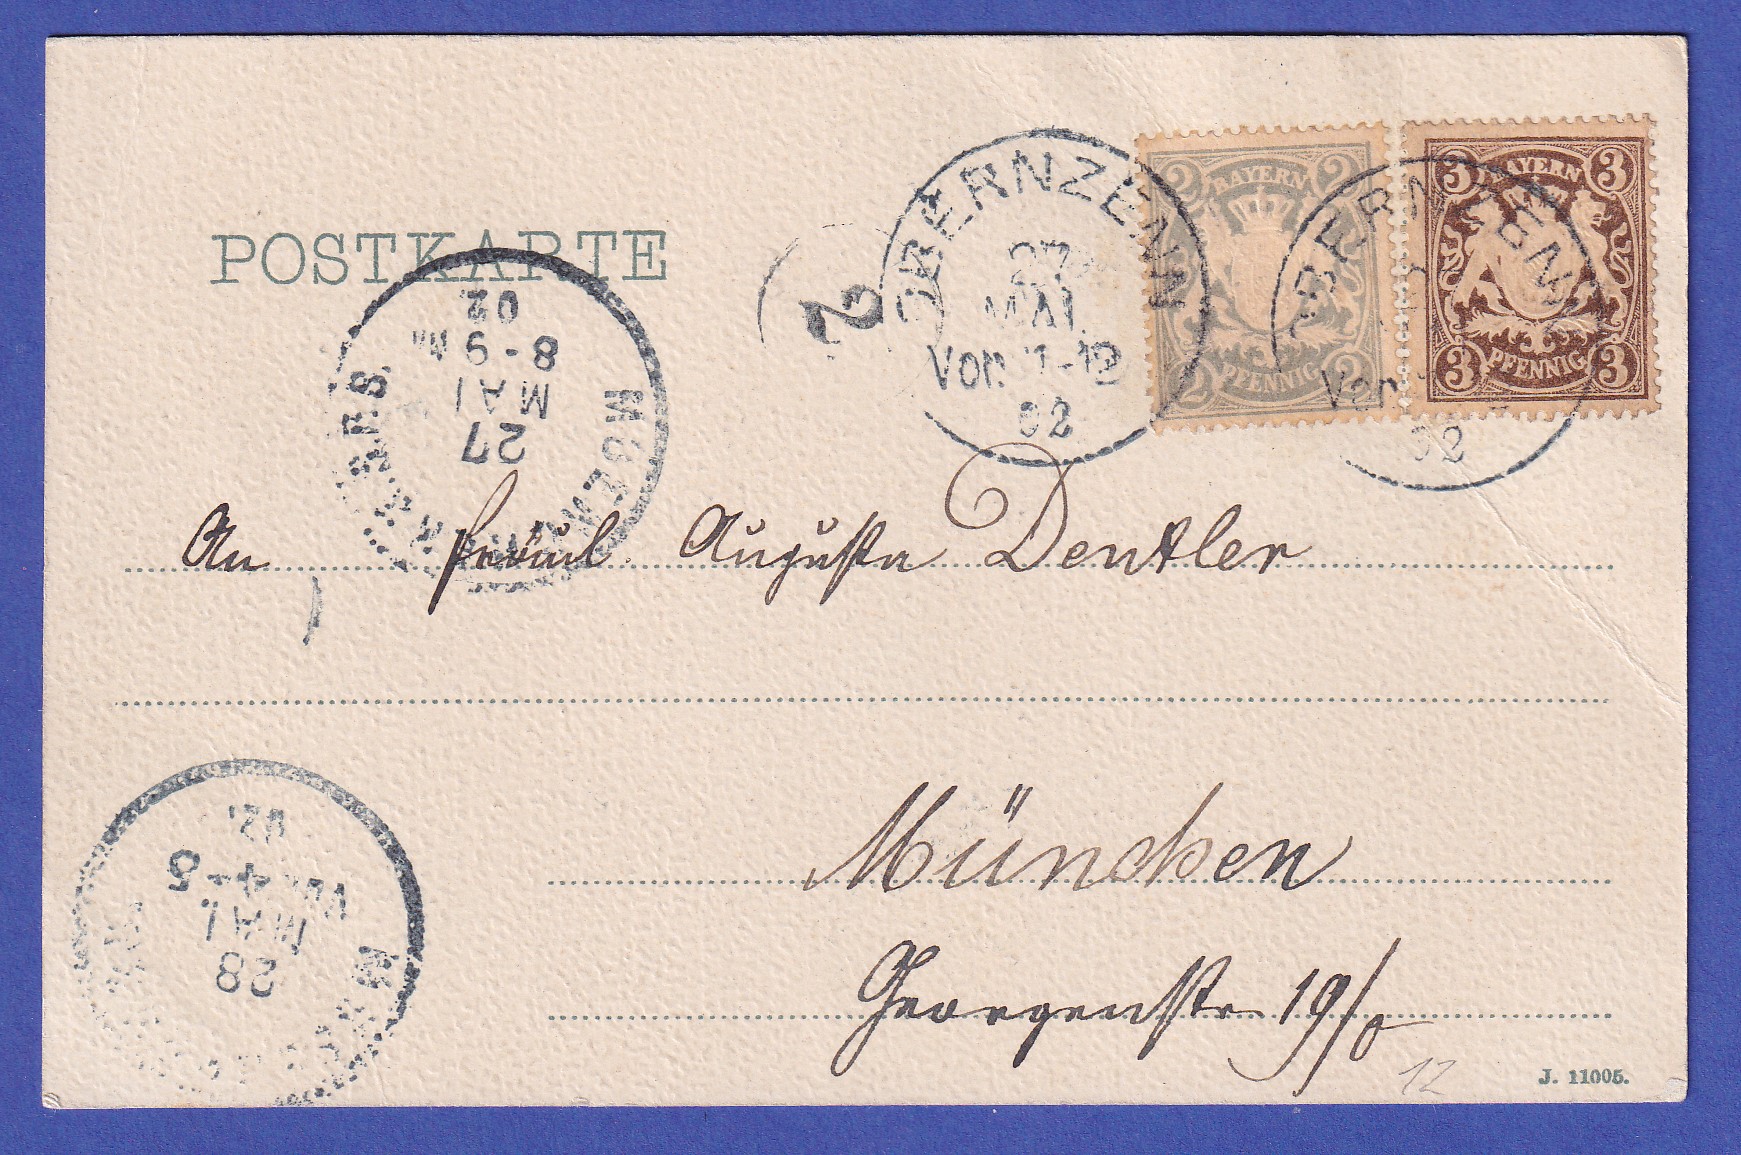 POSTKARTE
2
OBERNZENN
27
MAI
Vor. 11-12
02
2 BAYERN 2
2 PFENNIG 2
OBERNZENN
Vor.
02
3 BAYERN 3
3 PFENNIG 3
MUENCHEN
27
MAI
8-9 Nm
02
An Fräul. Augusta Dentler
München
Georgenstr 19/0
28
MAI
Vor. 4-5
02.
12
J. 11005.